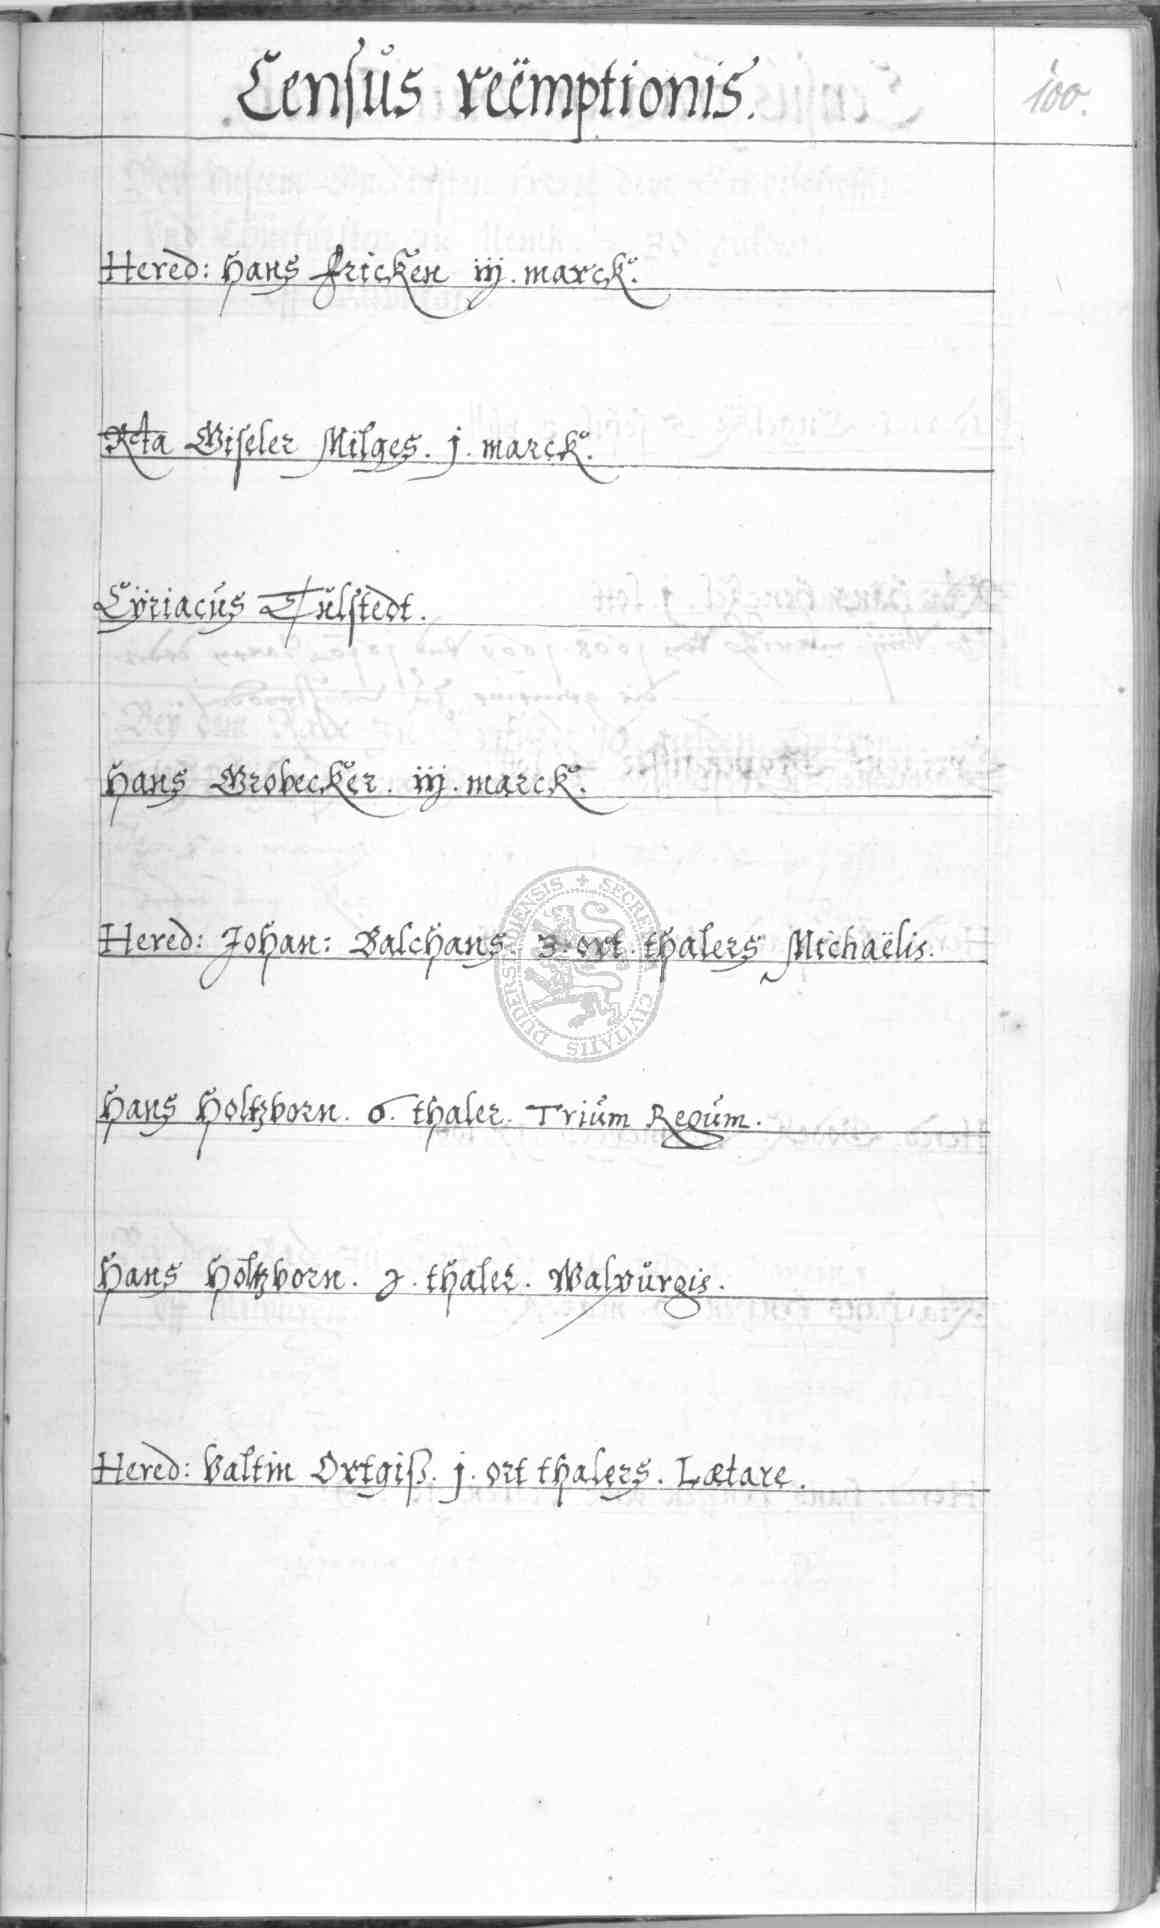 Censůs reëmptionis.
100.
Hered: Hans Fricken iij. marck.
Rcta Giseler Milges. j. marck.
Cyriacůs Tůlstedt.
Hans Grobecker. iij. marck.
Hered: Johan: Balchans. 3. ort. thalers Michaëlis.
Hans Holtzborn. 6. thaler. Triům Regům.
Hans Holtzborn. 2. thaler. Walpůrgis.
Hered: Valtin Ortgiß. j. ort thalers. Lætare.
SECRETV CIVITATIS DUDERSTADIENSIS